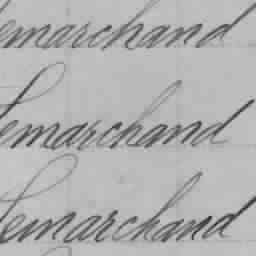 Lemarchand
Lemarchand
Lemarchand